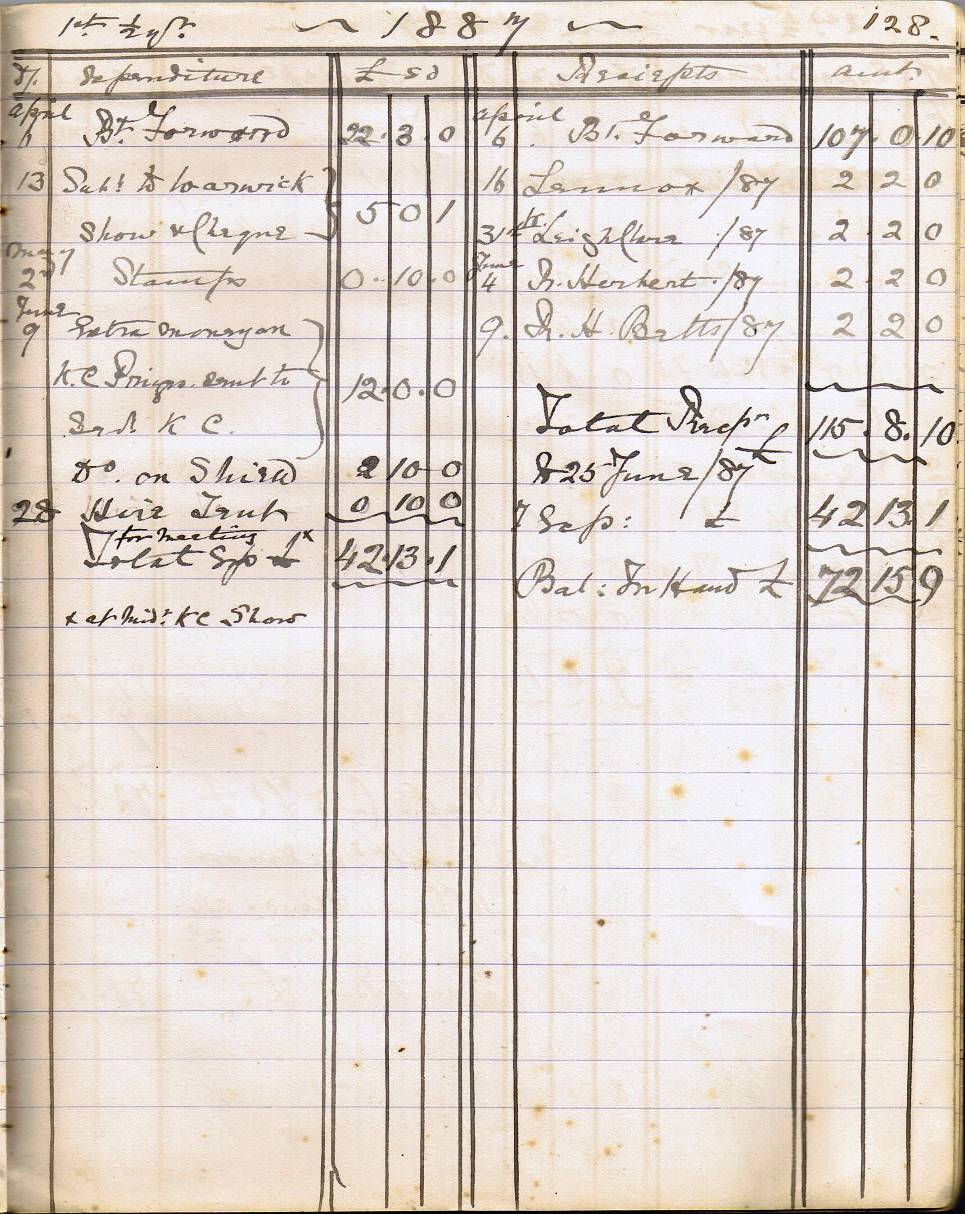 1st ½ yr. ~ 1887 ~ 128.
Dt. Expenditure £ s d Reciepts amt.
april april
6 Bt. Forward 22.3.0 6. Bt. Forward 107.0.10
13 Subs. to Warwick 16 Lennox /87 2 2 0
Show & Cheque 5 0 1 31st Leigh Clare /87 2.2 0
May June
2nd Stamps 0.10.0 4 R. Herbert /87 2.2 0
June
9 Extra money on 9. R. H. Betts /87 2 2 0
K.C Prizes sent to 12.0.0
Secd. K C. Total Recp 115.8.10
Do. on Shield 2 10 0 to 25 June /87
28 Hire Tent 0 10 0 Exp: £ 42 13.1
for meeting x
Total Exp £ 42.13.1 Bal: In Hand £ 72 15 9
x at Mid: KC Show